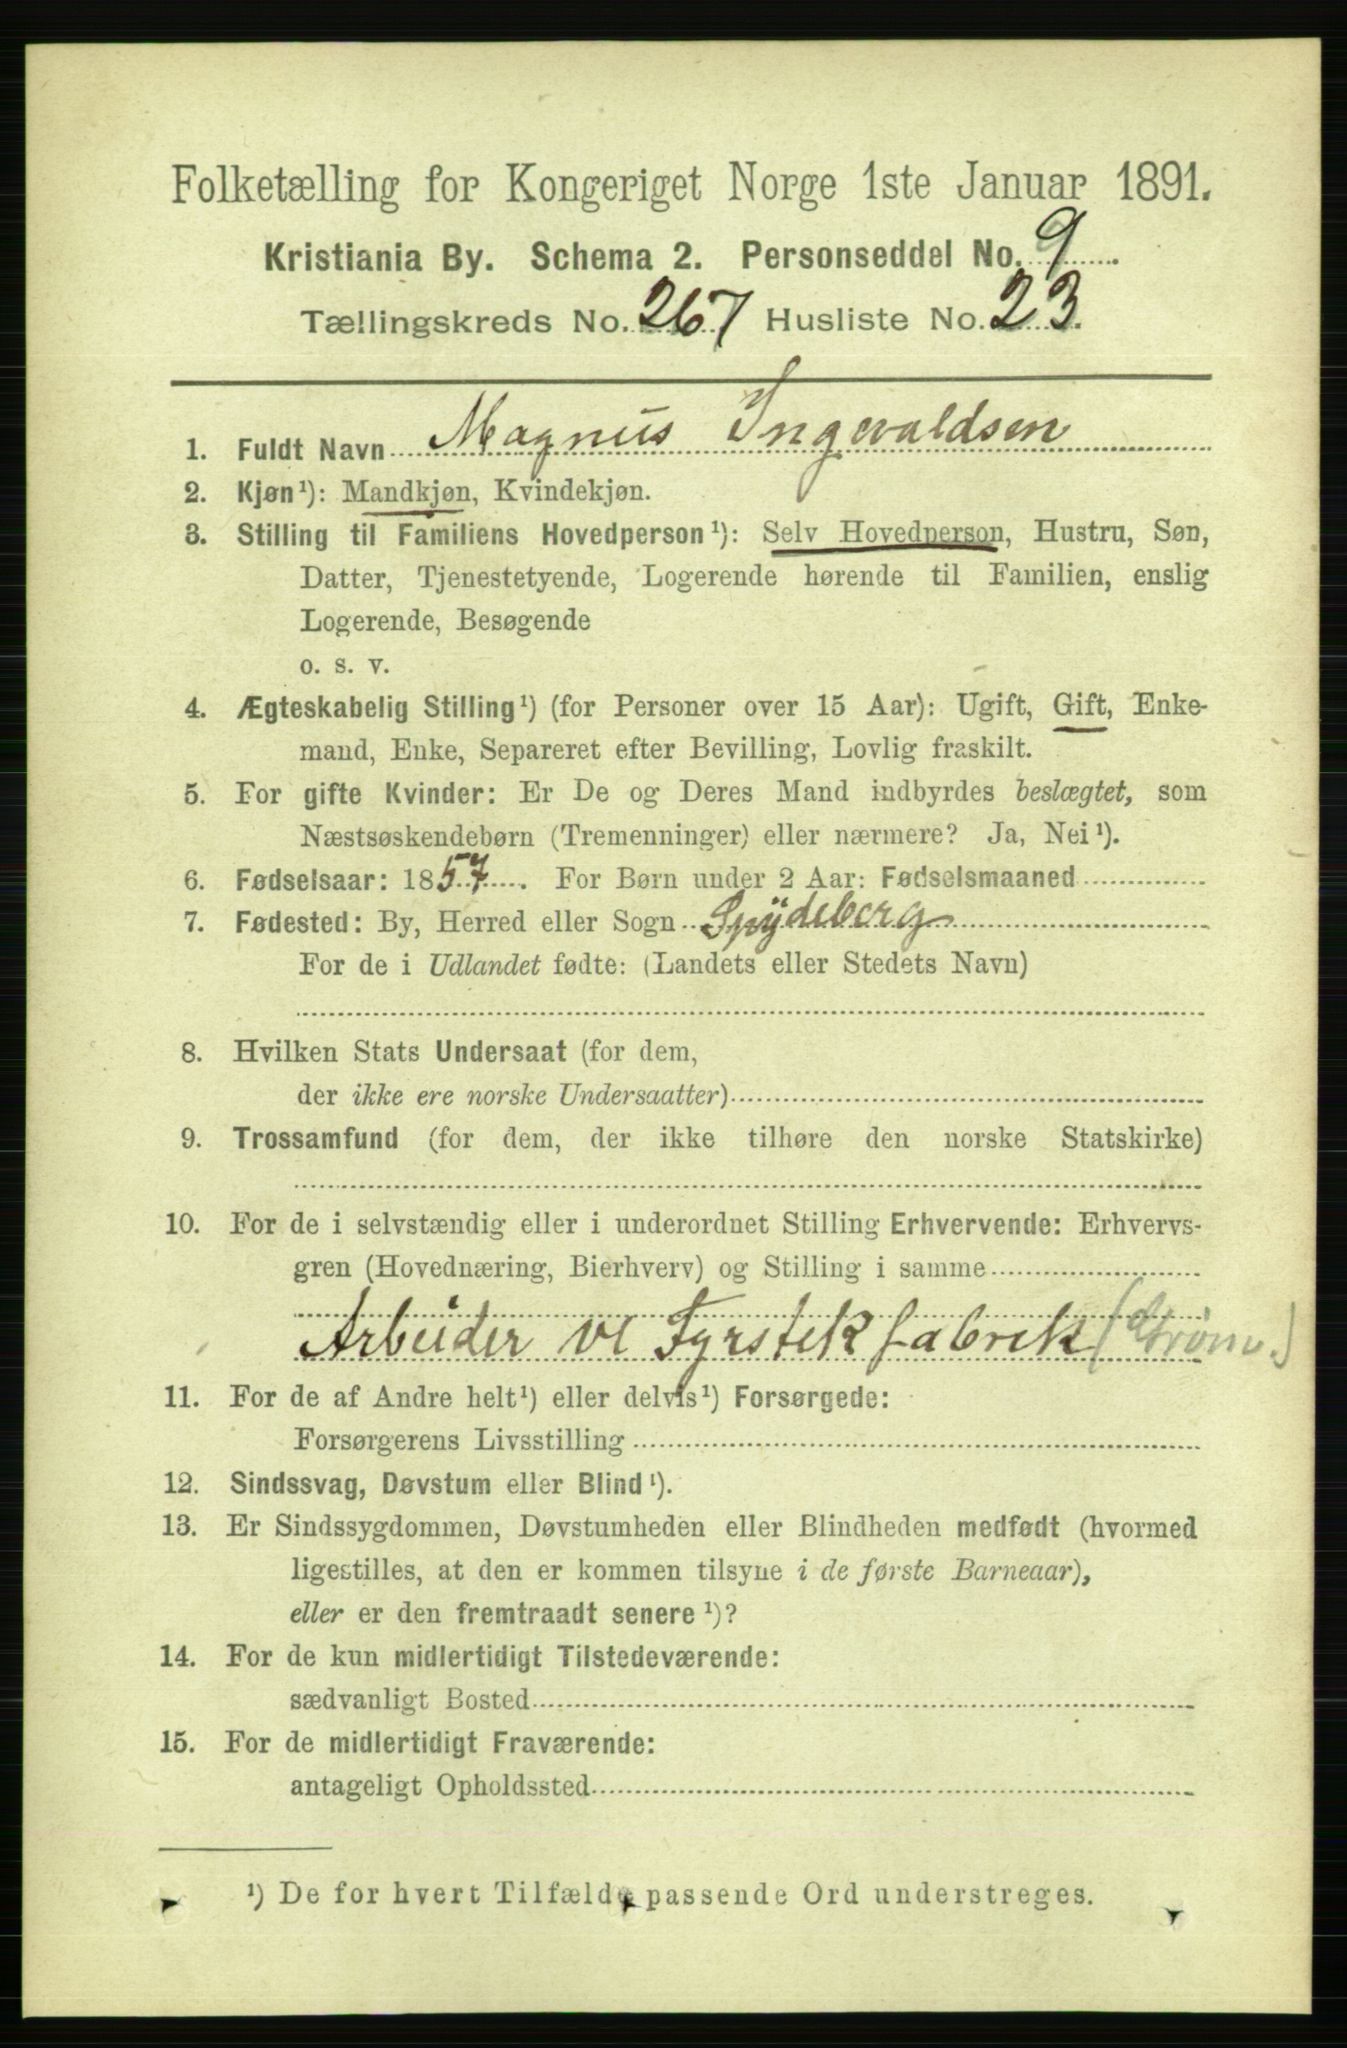 Folketælling for Kongeriget Norge 1ste Januar 1891.
Kristiania By. Schema 2. Personseddel No. 9
Tællingskreds No. 267 Husliste No. 23.
1. Fuldt Navn Magnus Ingevaldsen
2. Kjøn¹): Mandkjøn, Kvindekjøn.
3. Stilling til Familiens Hovedperson¹): Selv Hovedperson, Hustru, Søn,
Datter, Tjenestetyende, Logerende hørende til Familien, enslig
Logerende, Besøgende
o. s. v.
4. Ægteskabelig Stilling¹) (for Personer over 15 Aar): Ugift, Gift, Enke-
mand, Enke, Separeret efter Bevilling, Lovlig fraskilt.
5. For gifte Kvinder: Er De og Deres Mand indbyrdes beslægtet, som
Næstsøskendebørn (Tremenninger) eller nærmere? Ja, Nei¹).
6. Fødselsaar: 1857. For Børn under 2 Aar: Fødselsmaaned
7. Fødested: By, Herred eller Sogn Spydeberg
For de i Udlandet fødte: (Landets eller Stedets Navn)
8. Hvilken Stats Undersaat (for dem,
der ikke ere norske Undersaatter)
9. Trossamfund (for dem, der ikke tilhøre den norske Statskirke)
10. For de i selvstændig eller i underordnet Stilling Erhvervende: Erhvervs-
gren (Hovednæring, Bierhverv) og Stilling i samme
Arbeider ve Fyrstekfabrek (Grønv.)
11. For de af Andre helt¹) eller delvis¹) Forsørgede:
Forsørgerens Livsstilling
12. Sindssvag, Døvstum eller Blind¹).
13. Er Sindssygdommen, Døvstumheden eller Blindheden medfødt (hvormed
ligestilles, at den er kommen tilsyne i de første Barneaar),
eller er den fremtraadt senere¹)?
14. For de kun midlertidigt Tilstedeværende:
sædvanligt Bosted
15. For de midlertidigt Fraværende:
antageligt Opholdssted
¹) De for hvert Tilfælde passende Ord understreges.